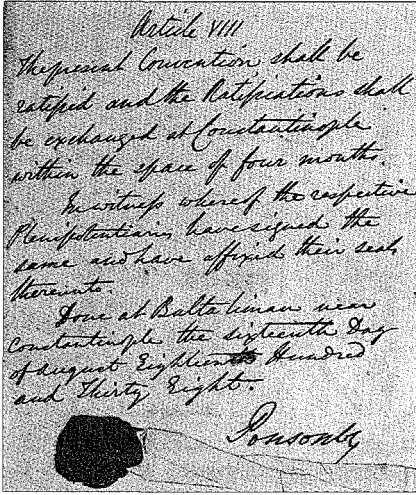 Article VIII
The present Convention shall be
ratified and the Ratifications shall
be exchanged at Constantinople
within the space of four months.
In witness whereof the respective
Plenipotentiaries have signed the
same and have affixed their seals
thereunto.
Done at Balta Liman near
Constantinople the sixteenth Day
of August Eighteen Hundred
and Thirty Eight.
Ponsonby